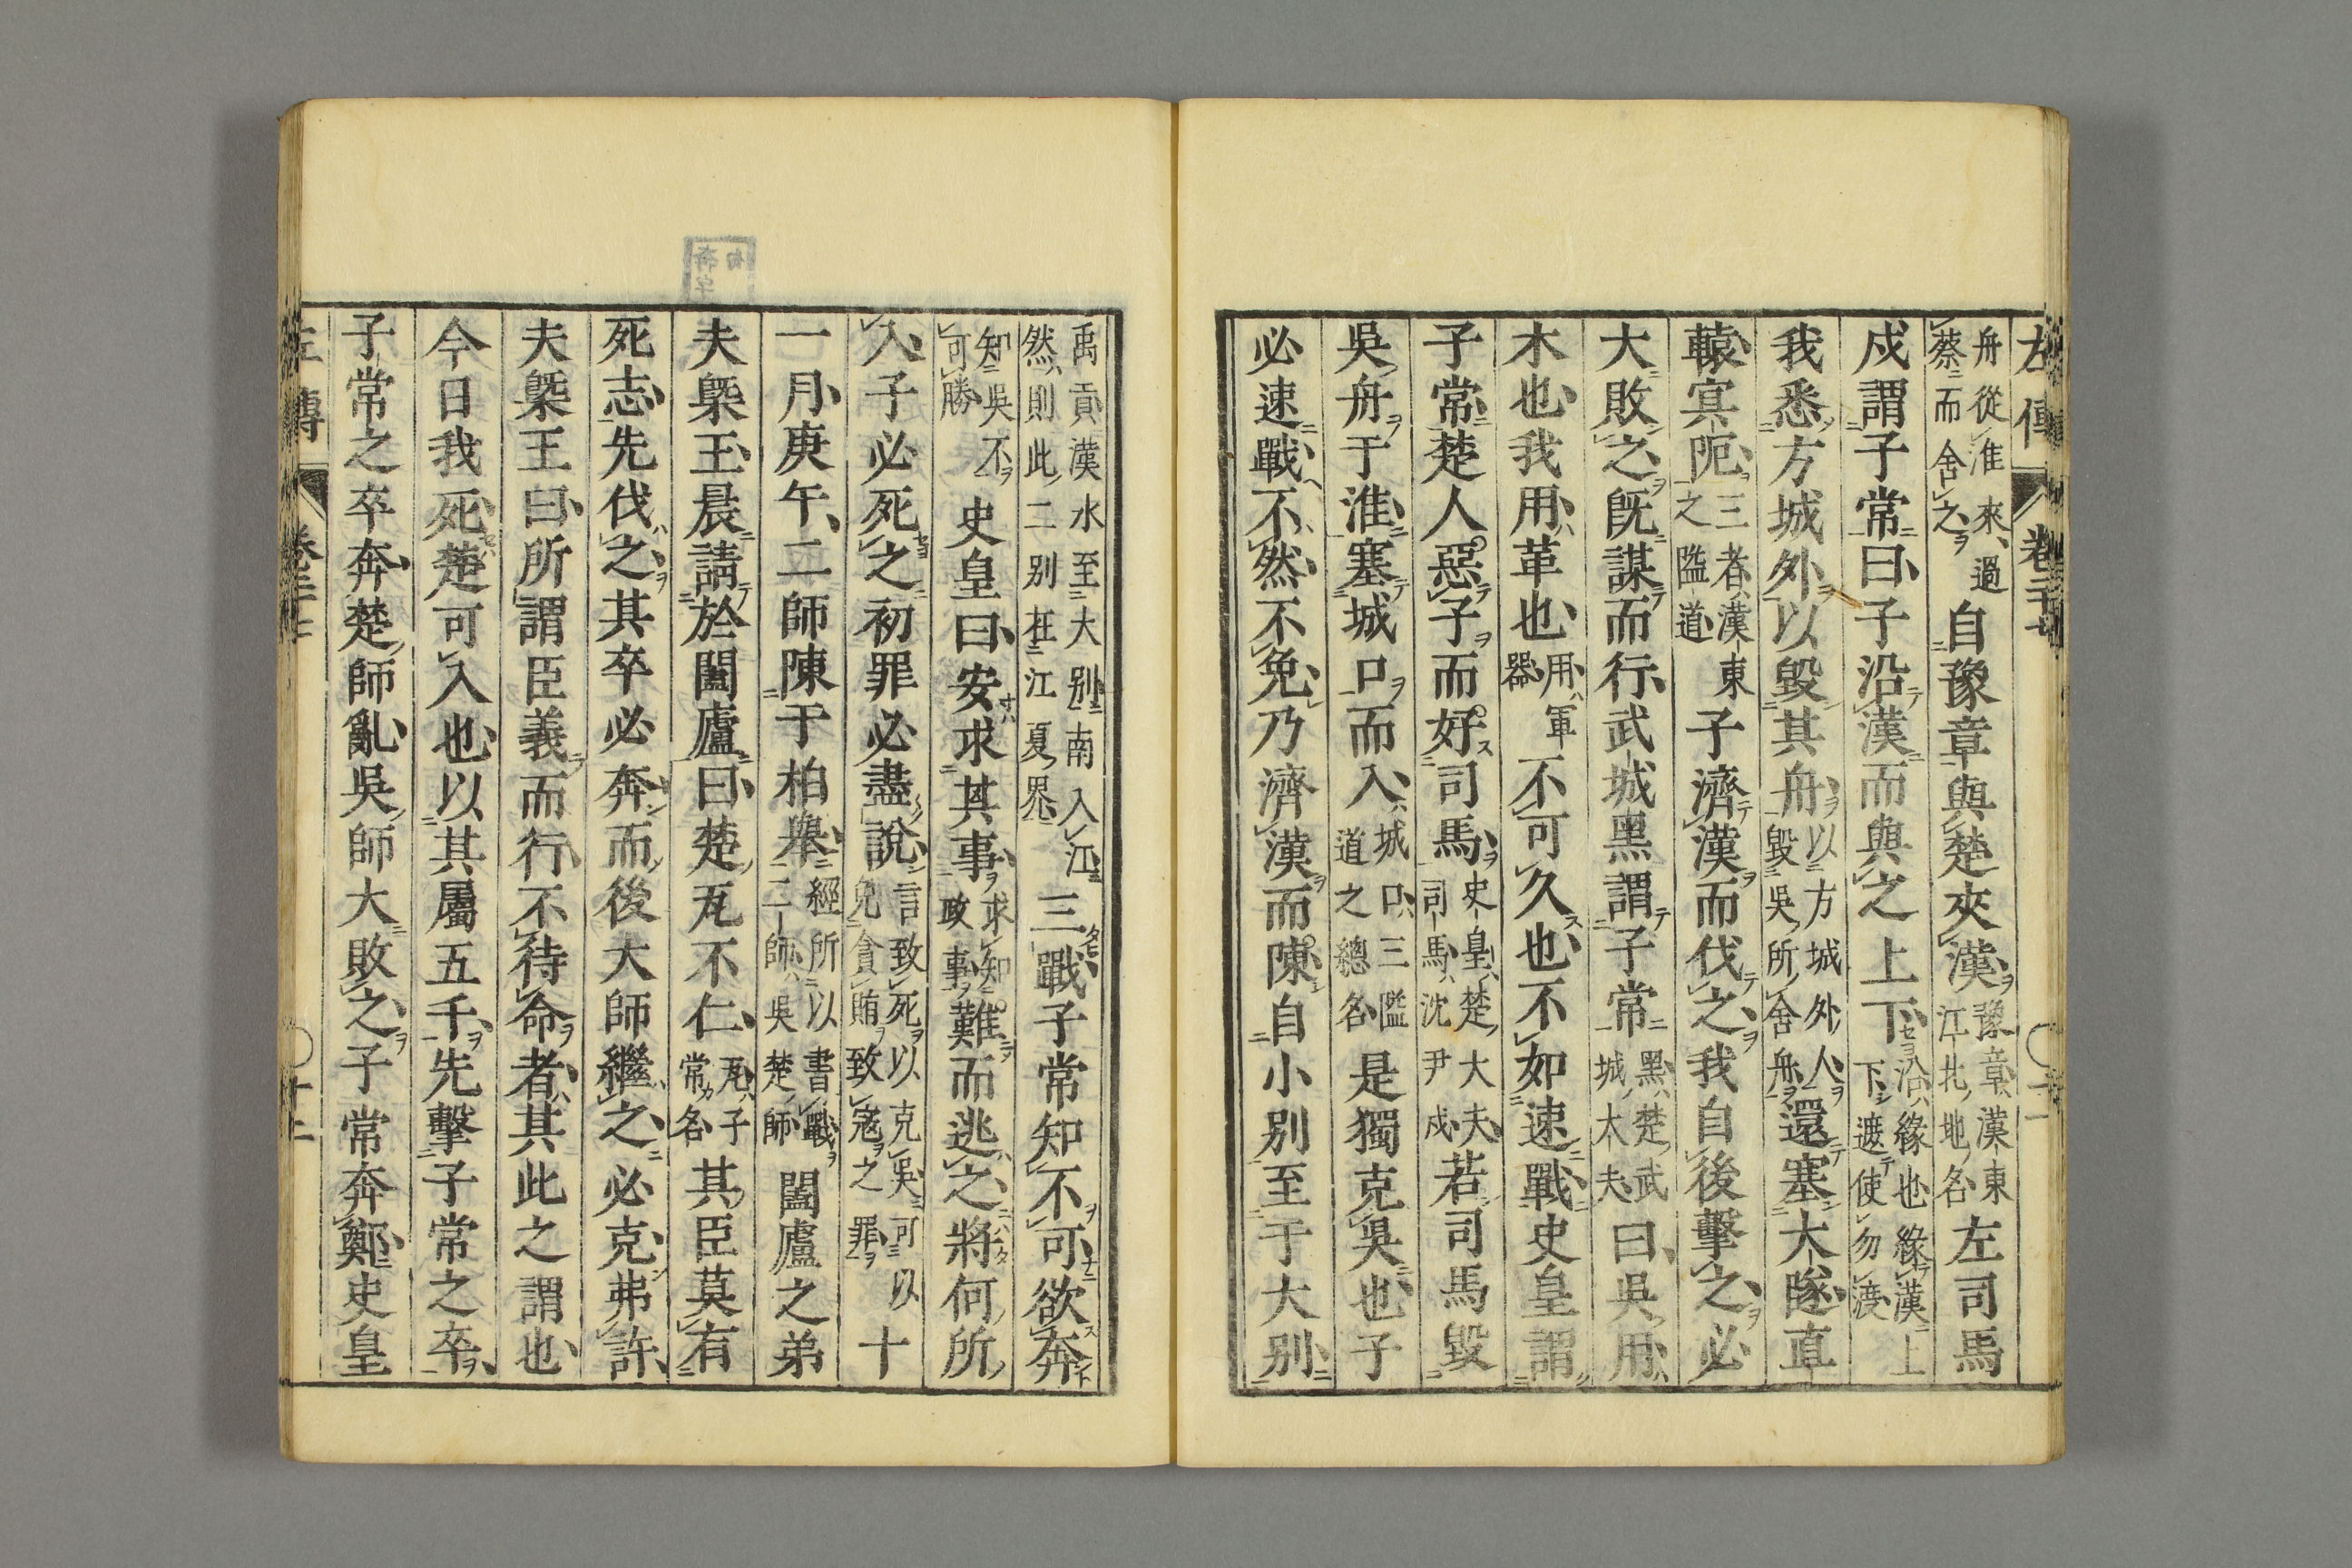 左傳 卷二十七
舟從淮來過蔡而舍之自豫章與楚夾漢豫章漢東江北地名左司馬
戍謂子常曰子沿漢而與之上下沿緣也緣漢上下遮使勿渡
我悉方城外以毀其舟以方城外人毀吳所舍舟還塞大隧直
轅冥阨三者漢東之隘道子濟漢而伐之我自後擊之必
大敗之既謀而行武城黑謂子常黑楚武城大夫曰吳用
木也我用革也用軍器不可久也不如速戰史皇謂
子常楚人惡子而好司馬史皇楚大夫司馬沈尹戍若司馬毀
吳舟于淮塞城口而入城口三隘道之總名是獨克吳也子
必速戰不然不免乃濟漢而陳自小別至于大別
禹貢漢水至大別南入江然則此二別在江夏界三戰子常知不可欲奔
知吳不可勝史皇曰安求其事求知政事難而逃之將何所
入子必死之初罪必盡說言致死以克吳可以免貪賄致寇之罪十
一月庚午二師陳于柏舉經所以書戰二師吳楚師闔廬之弟
夫㮣王晨請於闔廬曰楚瓦不仁瓦子常名其臣莫有
死志先伐之其卒必奔而後大師繼之必克弗許
夫㮣王曰所謂臣義而行不待命者其此之謂也
今日我死楚可入也以其屬五千先擊子常之卒
子常之卒奔楚師亂吳師大敗之子常奔鄭史皇